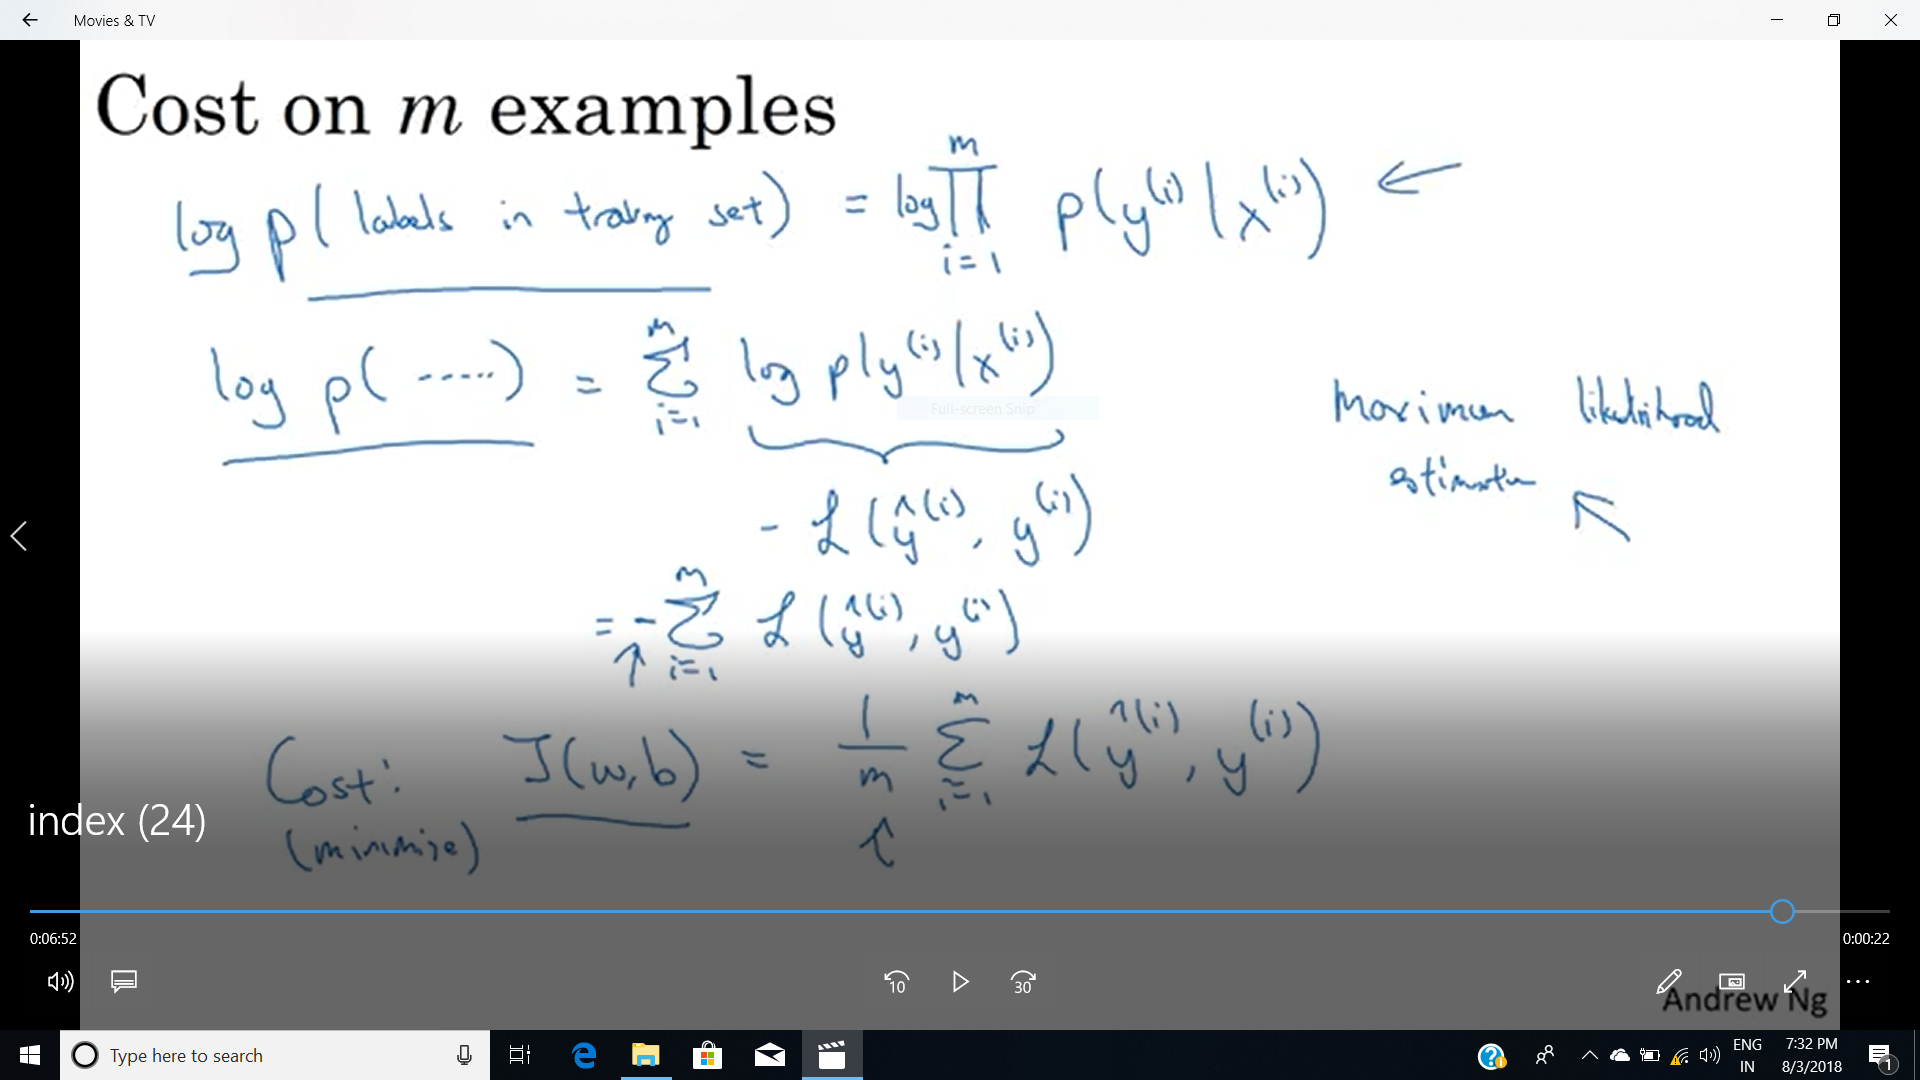 Movies & TV
Cost on m examples
log p( labels in training set ) = log ∏ᵢ₌₁ᵐ p(y⁽ⁱ⁾ | x⁽ⁱ⁾) ←
log p( ..... ) = Σᵢ₌₁ᵐ log p(y⁽ⁱ⁾ | x⁽ⁱ⁾)
Full-screen Snip
Maximum likelihood
estimation ↖
- ℒ(ŷ⁽ⁱ⁾, y⁽ⁱ⁾)
= - Σᵢ₌₁ᵐ ℒ(ŷ⁽ⁱ⁾, y⁽ⁱ⁾)
↑
Cost: J(w,b) = 1/m Σᵢ₌₁ᵐ ℒ(ŷ⁽ⁱ⁾, y⁽ⁱ⁾)
(minimize) ↑
index (24)
0:06:52 0:00:22
10 30
Andrew Ng
Type here to search
ENG 7:32 PM
IN 8/3/2018 1